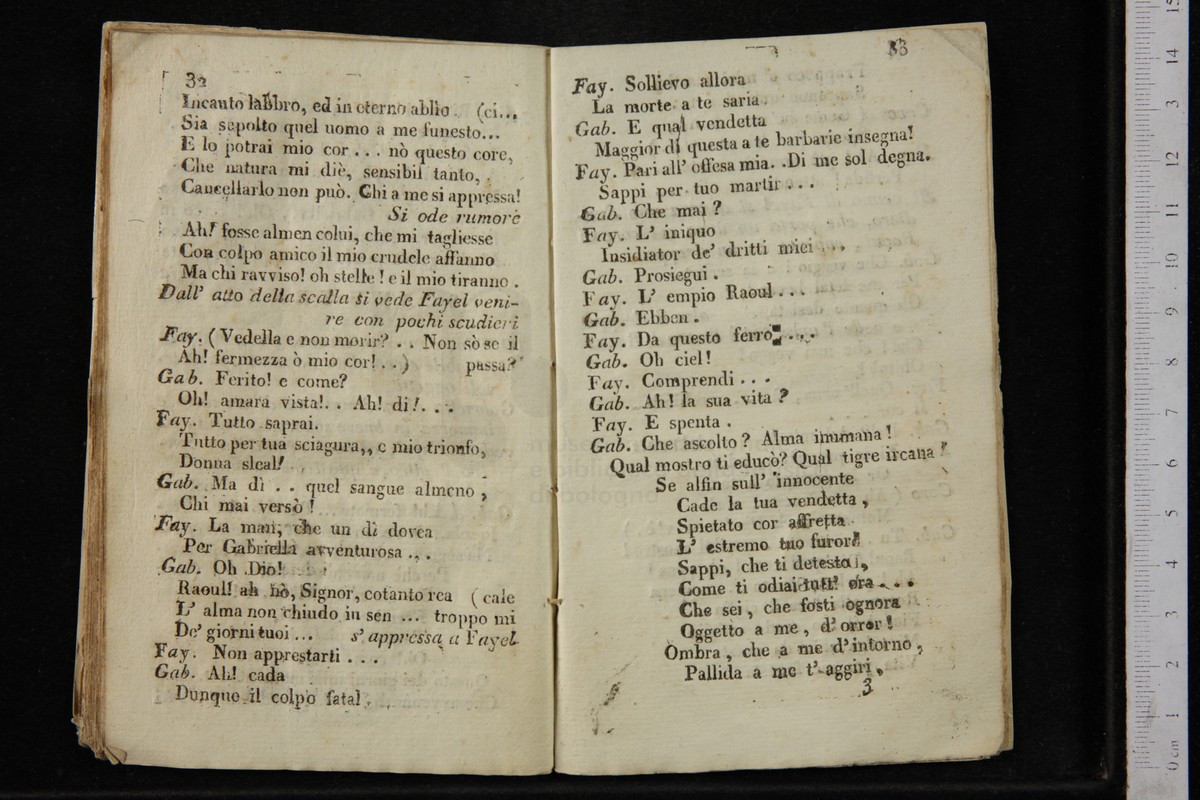 32
Incauto labbro, ed in eterno ablio (ci...
Sia sepolto quel uomo a me funesto...
E lo potrai mio cor . . . nò questo core,
Che natura mi diè, sensibil tanto,
Cancellarlo non può. Chi a me si appressa!
Si ode rumore
Ah! fosse almen colui, che mi tagliesse
Con colpo amico il mio crudele affanno
Ma chi ravviso! oh stelle! e il mio tiranno .
Dall' atto della scalla si vede Fayel veni-
re con pochi scudieri
Fay. ( Vedella e non morir? . . Non sò se il
Ah! fermezza ò mio cor! . . ) passa?
Gab. Ferito! e come?
Oh! amara vista!. . Ah! di!. . .
Fay. Tutto saprai.
Tutto per tua sciagura,, e mio trionfo,
Donna sleal!
Gab. Ma dì . . quel sangue almeno ;
Chi mai versò !
Fay. La man, che un dì dovea
Per Gabriella avventurosa . . .
Gab. Oh Dio!
Raoul! ah nò, Signor, cotanto rea ( cale
L' alma non chiudo in sen ... troppo mi
De' giorni tuoi ... s' appressa a Fayel
Fay. Non apprestarti . . .
Gab. Ah! cada
Dunque il colpo fatal.
33
Fay. Sollievo allora
La morte a te saria.
Gab. E qual vendetta
Maggior di questa a te barbarie insegna!
Fay. Pari all' offesa mia. .Di me sol degna.
Sappi per tuo martir . . .
Gab. Che mai ?
Fay. L' iniquo
Insidiator de' dritti miei . . .
Gab. Prosiegui .
Fay. L' empio Raoul . . .
Gab. Ebben .
Fay. Da questo ferro . . .
Gab. Oh ciel!
Fay. Comprendi . . .
Gab. Ah! la sua vita ?
Fay. E spenta .
Gab. Che ascolto? Alma inumana!
Qual mostro ti educò? Qual tigre ircana ?
Se alfin sull' innocente
Cade la tua vendetta ,
Spietato cor affretta
L' estremo tuo furor!
Sappi, che ti detestai,
Come ti odiai tutt' ora . . .
Che sei , che fosti ognora
Oggetto a me , d' orror !
Ombra , che a me d' intorno ,
Pallida a me t' aggiri ,
3